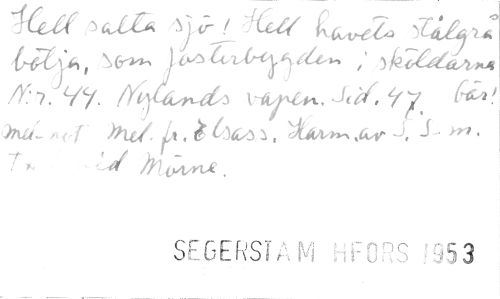 Hell salta sjö! Hell havets stålgrå
bölja, som fosterbygden i sköldarna
N:r. 44. Nylands vapen. Sid. 47. bär!
Mel. fr. Elsass. Harm. av S. S-m.
Mörne.
SEGERSTAM HFORS 1953